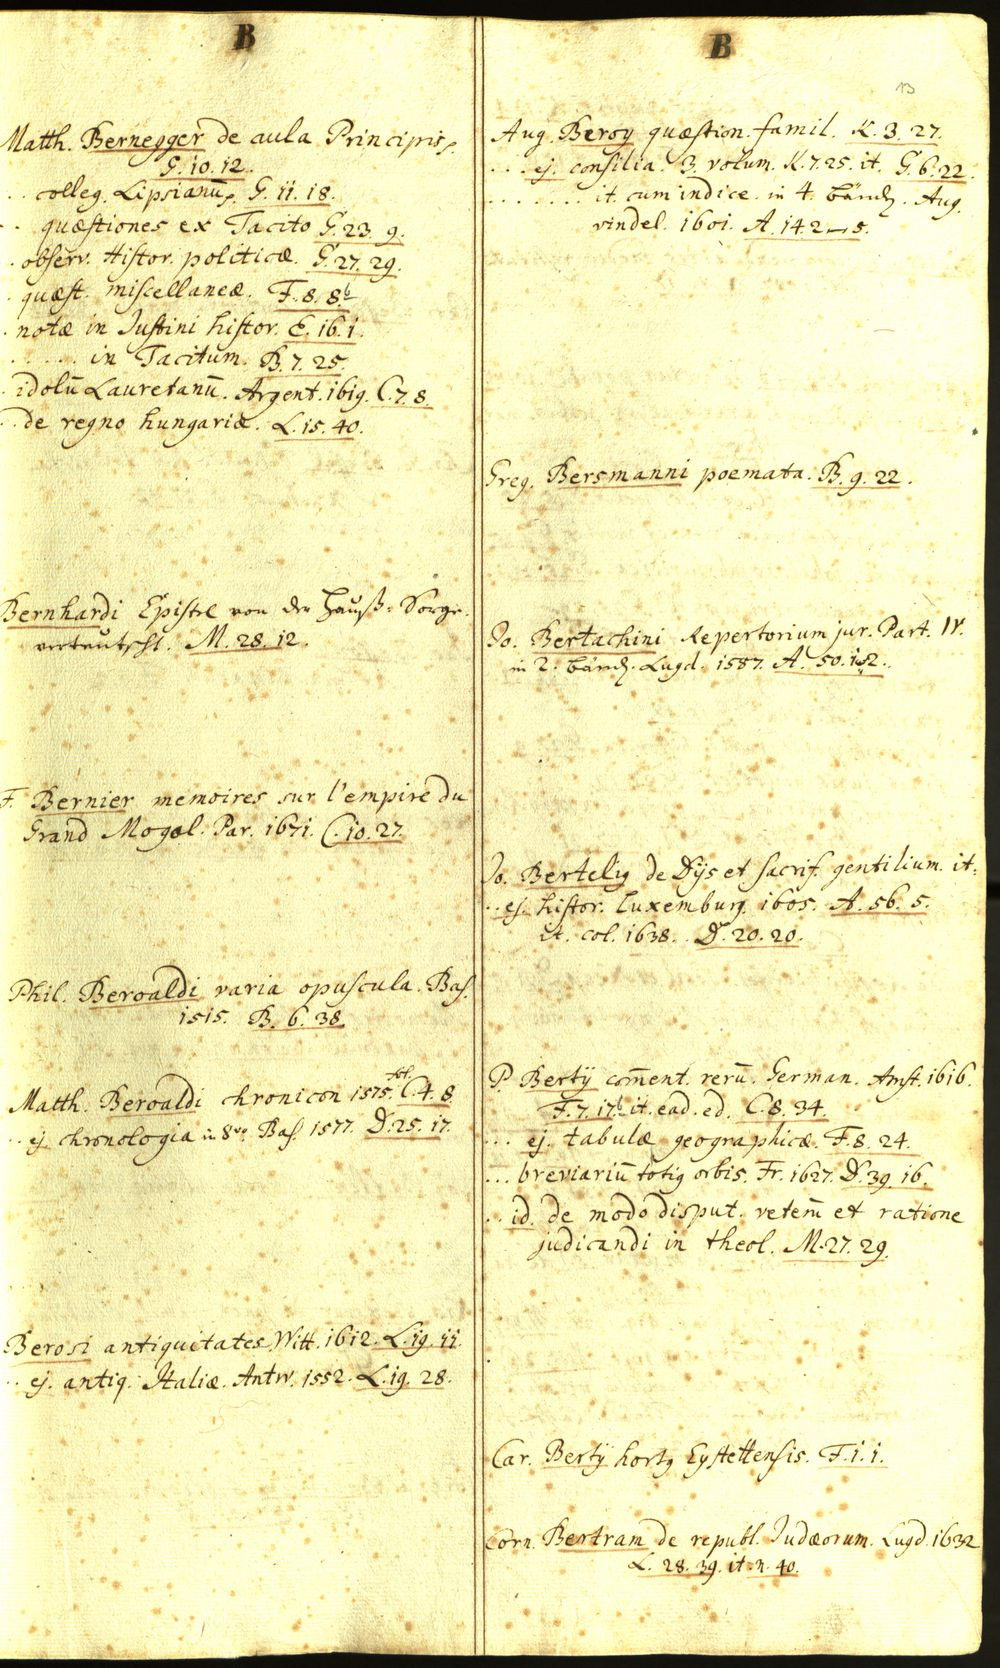 B
Matth. Bernegger de aula Principis.
G. 10. 12.
.. colleg. Lipsianū. G. 11. 18.
.. quæstiones ex Tacito G. 23. 9.
. observ. Histor. politicæ. G. 27. 29.
. quæst. miscellaneæ. F. 8. 8.b
. notæ in Justini histor. E. 16. 1.
..... in Tacitum. B. 7. 25.
. idolū Lauretanū. Argent. 1619. C. 7. 8.
.. de regno hungariæ. L. 15. 40.
Bernhardi Epistel von der Hauß-Sorge.
verteutscht. M. 28. 12.
F. Bernier memoires sur l'empire du
Grand Mogol. Par. 1671. C. 10. 27.
Phil. Beroaldi varia opuscula. Bas.
1515. B. 6. 38.
Matth. Beroaldi chronicon 1575. fol. C. 4. 8.
.. ej. chronologia in 8vo Bas. 1577. D. 25. 17.
Berosi antiquitates. Witt. 1612. L. 19. 11.
.. ej. antiq. Italiæ. Antw. 1552. L. 19. 28.
B
13
Aug. Beroy quæstion. famil. K. 3. 27.
... ej. consilia. 3. volum. K. 7. 25. it. G. 6. 22.
....... it. cum indice in 4. bänd. Aug.
vindel. 1601. A. 14. 2–5.
Greg. Bersmanni poemata. B. 9. 22.
Jo. Bertachini Repertorium jur. Part. IV.
in 2. bänd. Lugd. 1587. A. 50. 1. 2.
Jo. Bertelig de Dijs et sacrif. gentilium. it.
.. ej. histor. Luxemburg. 1605. A. 56. 5.
it. col. 1638. D. 20. 20.
P. Bertij com̄ent. rerū. German. Amst. 1616.
F. 7. 17.b it. ead. ed. C. 8. 34.
... ej. tabulæ geographicæ. F. 8. 24.
... breviariū totig orbis. Fr. 1627. D. 39. 16.
.. id. de modo disput. veterū et ratione
judicandi in theol. M. 27. 29.
Car. Bertij hortg Eystettensis. F. 1. 1.
Corn. Bertram de republ. Judæorum. Lugd. 1632
L. 28. 39. it. n. 40.